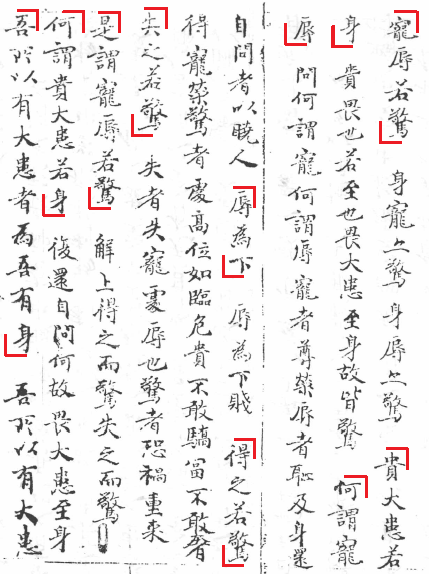 寵辱若驚 身寵亦驚身辱亦驚 貴大患若
身 貴畏也若至也畏大患至身故皆驚 何謂寵
辱 問何謂寵何謂辱寵者尊榮辱者恥及身還
自問者以曉人 辱為下 辱為下賤 得之若驚
得寵榮驚者處高位如臨危貴不敢驕富不敢奢
失之若驚 失者失寵處辱也驚者恐禍重来
是謂寵辱若驚 解上得之而驚失之而驚
何謂貴大患若身 復還自問何故畏大患至身
吾所以有大患者為吾有身 吾所以有大患